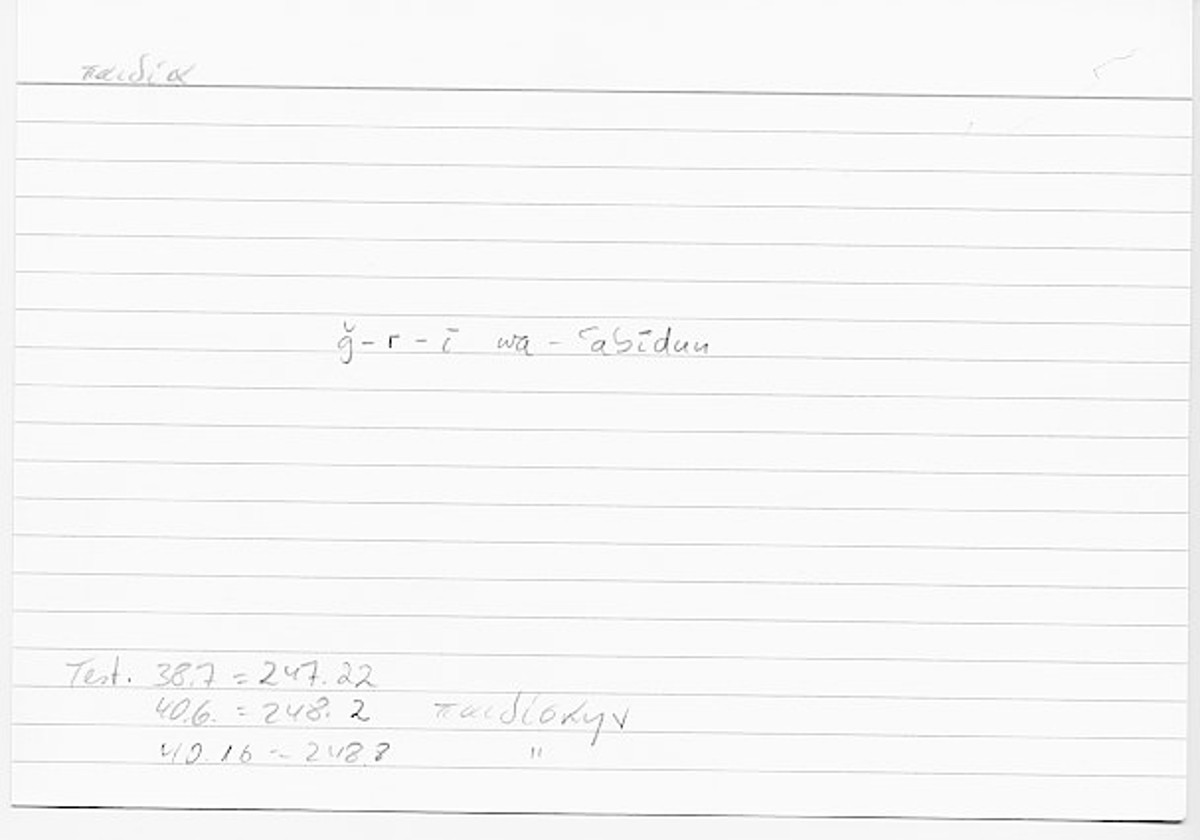 παιδία
ğ-r-ī wa-ʿabīdun
Test. 38.7 = 247.22
40.6. = 248.2 παιδίσκην
40.16 = 248.8 "